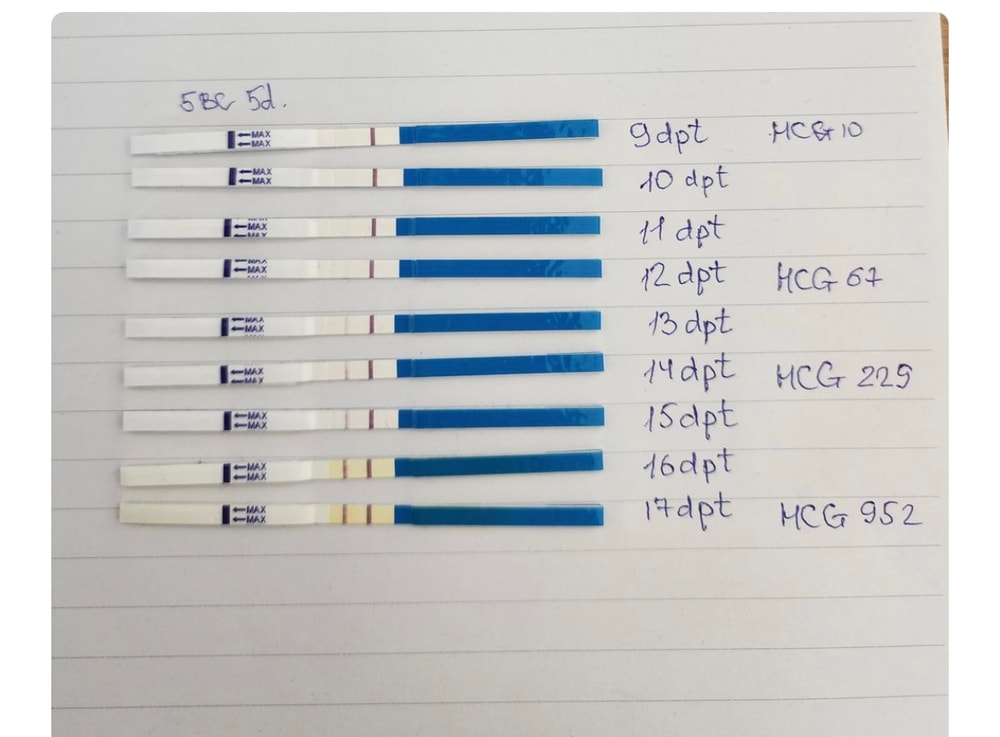 5BC 5d.
←MAX
←MAX 9dpt HCG 10
←MAX
←MAX 10 dpt
MAX
←MAX
MAX 11 dpt
MAX
←MAX 12 dpt HCG 67
←MAX
←MAX 13 dpt
←MAX
MAX 14dpt HCG 229
←MAX
←MAX 15dpt
←MAX
←MAX 16dpt
←MAX
←MAX 17dpt HCG 952